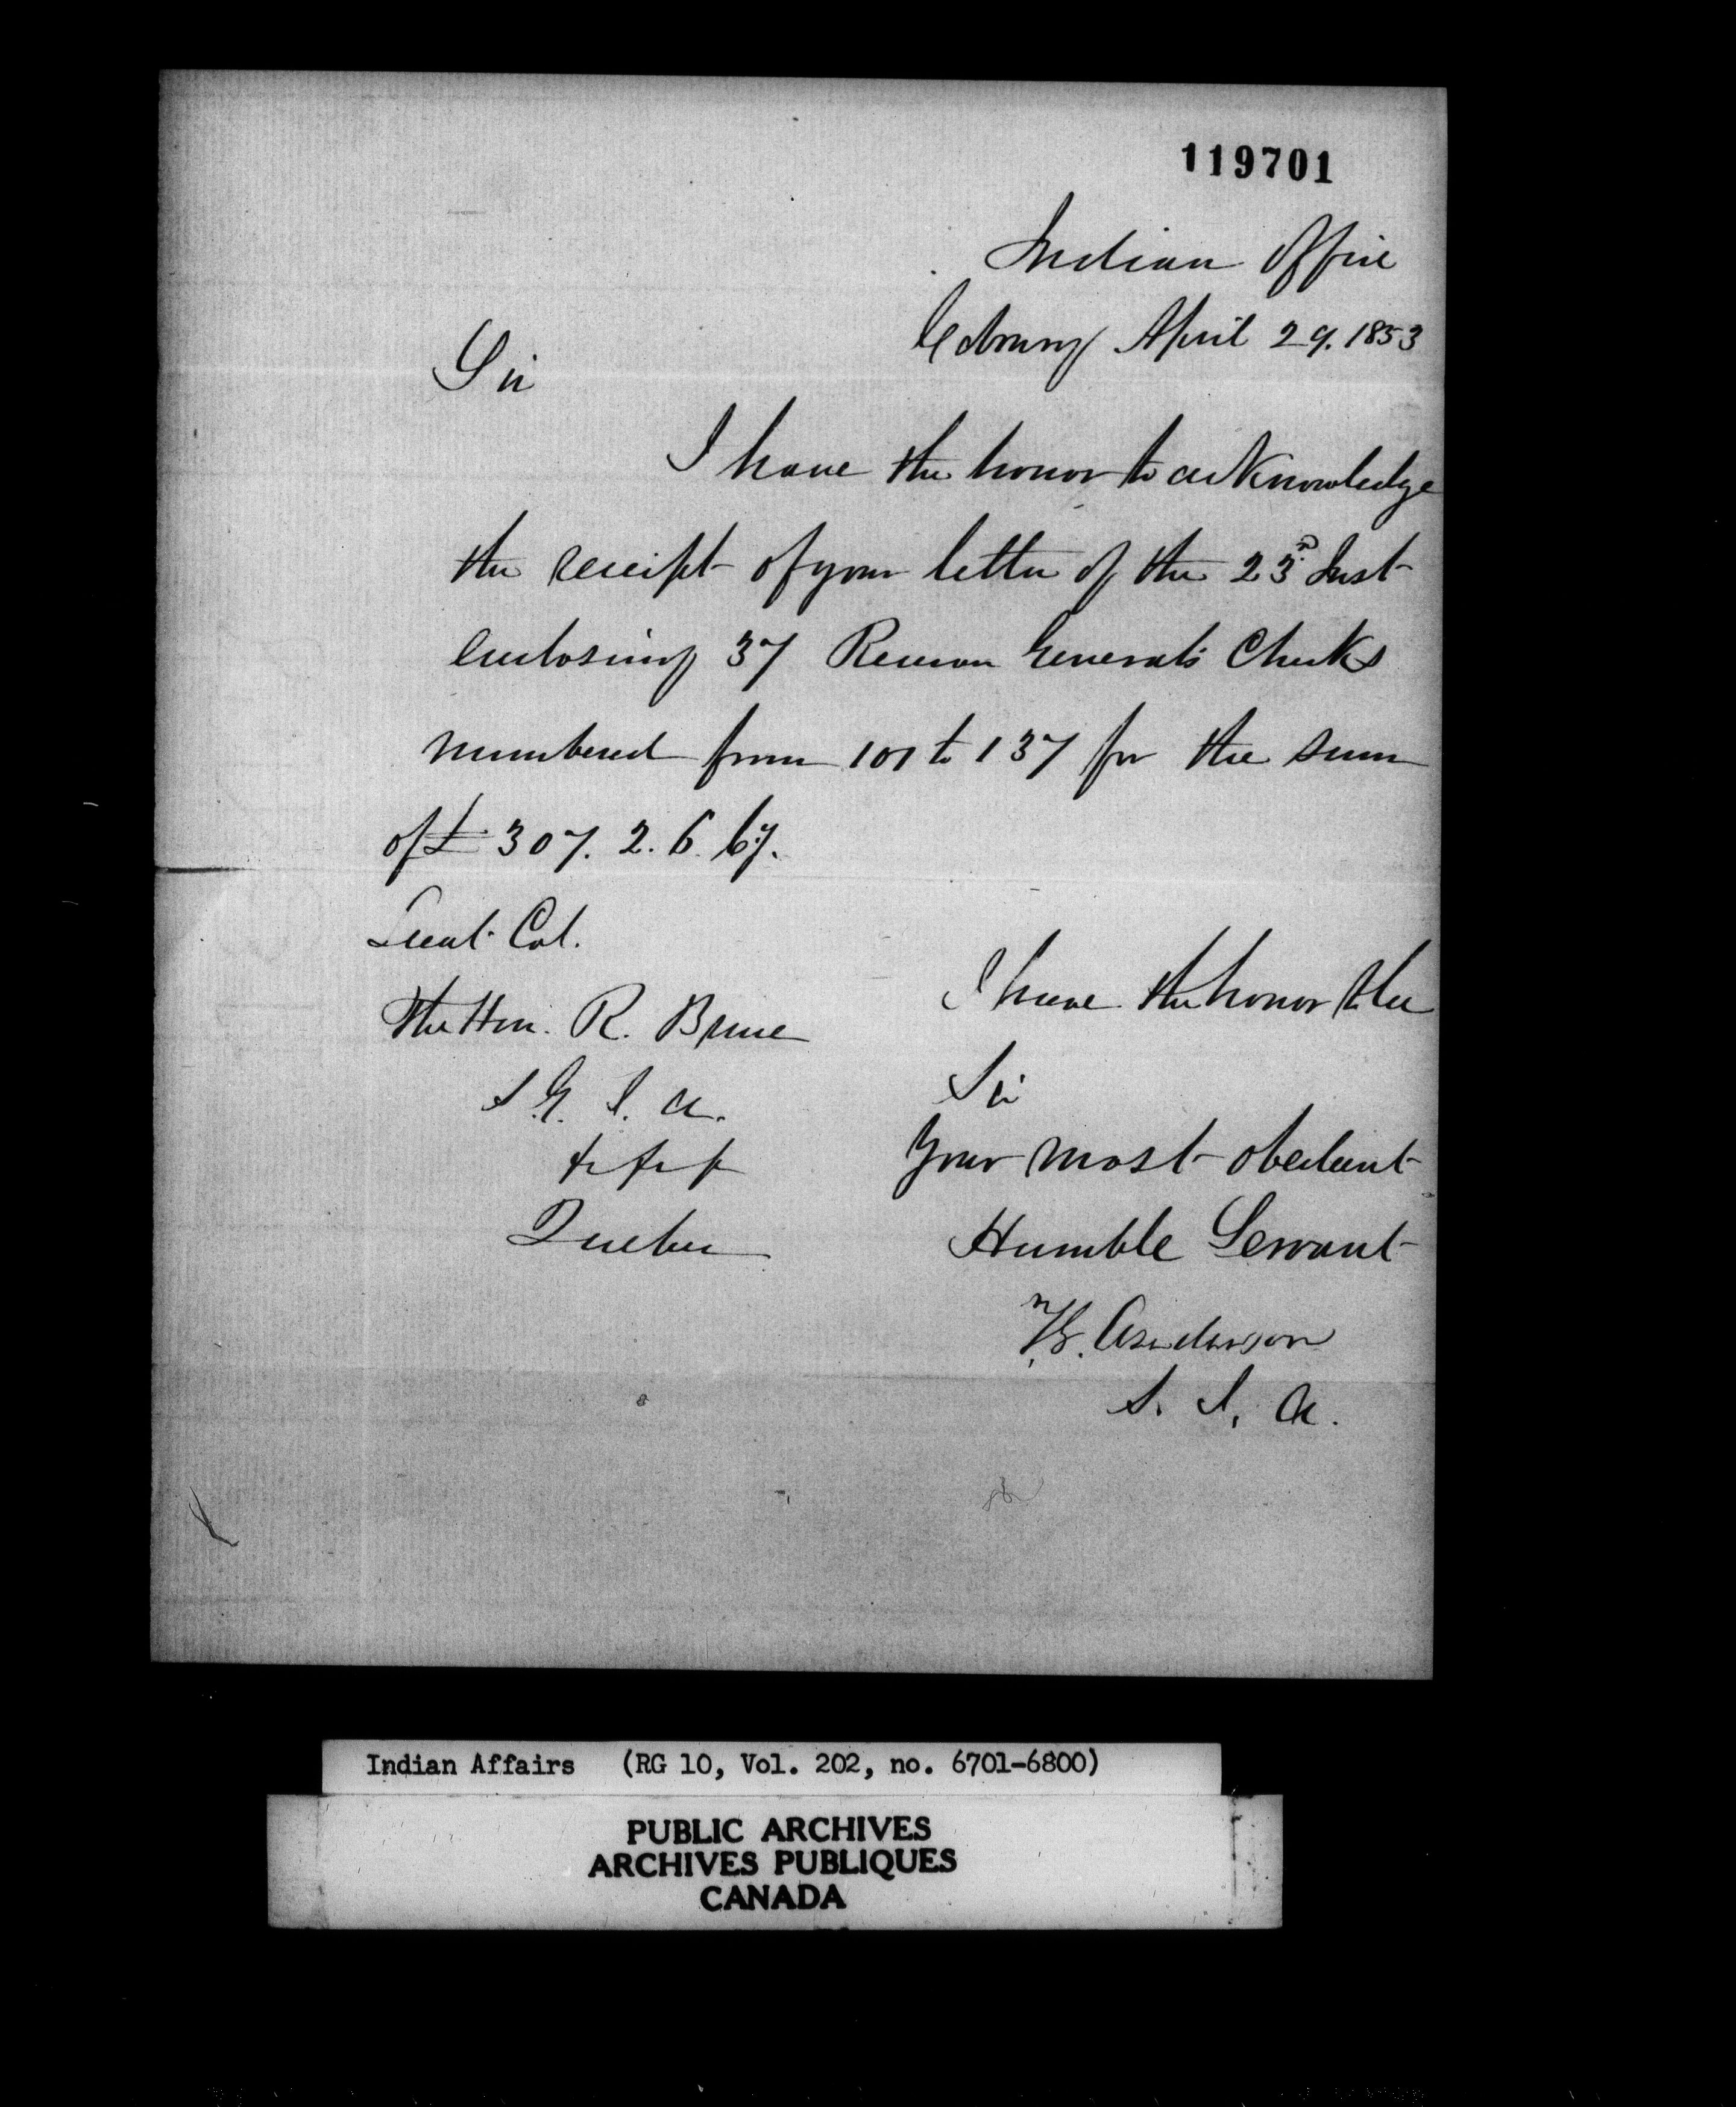 119701
Indian Office
Cobourg April 29. 1853
Sir
I have the honor to acknowledge
the receipt of your letter of the 23rd Inst
enclosing 37 Receiver General's Checks
numbered from 101 to 137 for the sum
of £ 307. 2. 6 Cy.
Lieut. Col.
The Hon. R. Bruce
S. G. I. A.
Quebec
I have the honor to be
Sir
Your most obedient
Humble Servant
T. G. Anderson
S. I. A.
Indian Affairs (RG 10, Vol. 202, no. 6701-6800)
PUBLIC ARCHIVES
ARCHIVES PUBLIQUES
CANADA